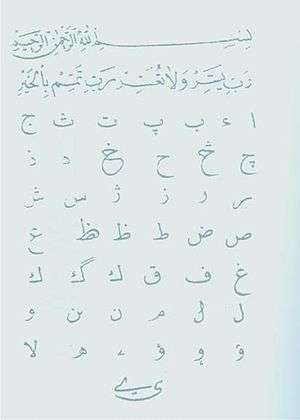 بسم الله الرحمن الرحيم
رب يسر ولا تعسر رب تمم بالخير
ا ء ب پ ت ث ج
چ ح خ د ذ
ر ز ژ س ش
ص ض ط ظ ع
غ ف ق ك گ ك
ل م ن و
ه لا
ي